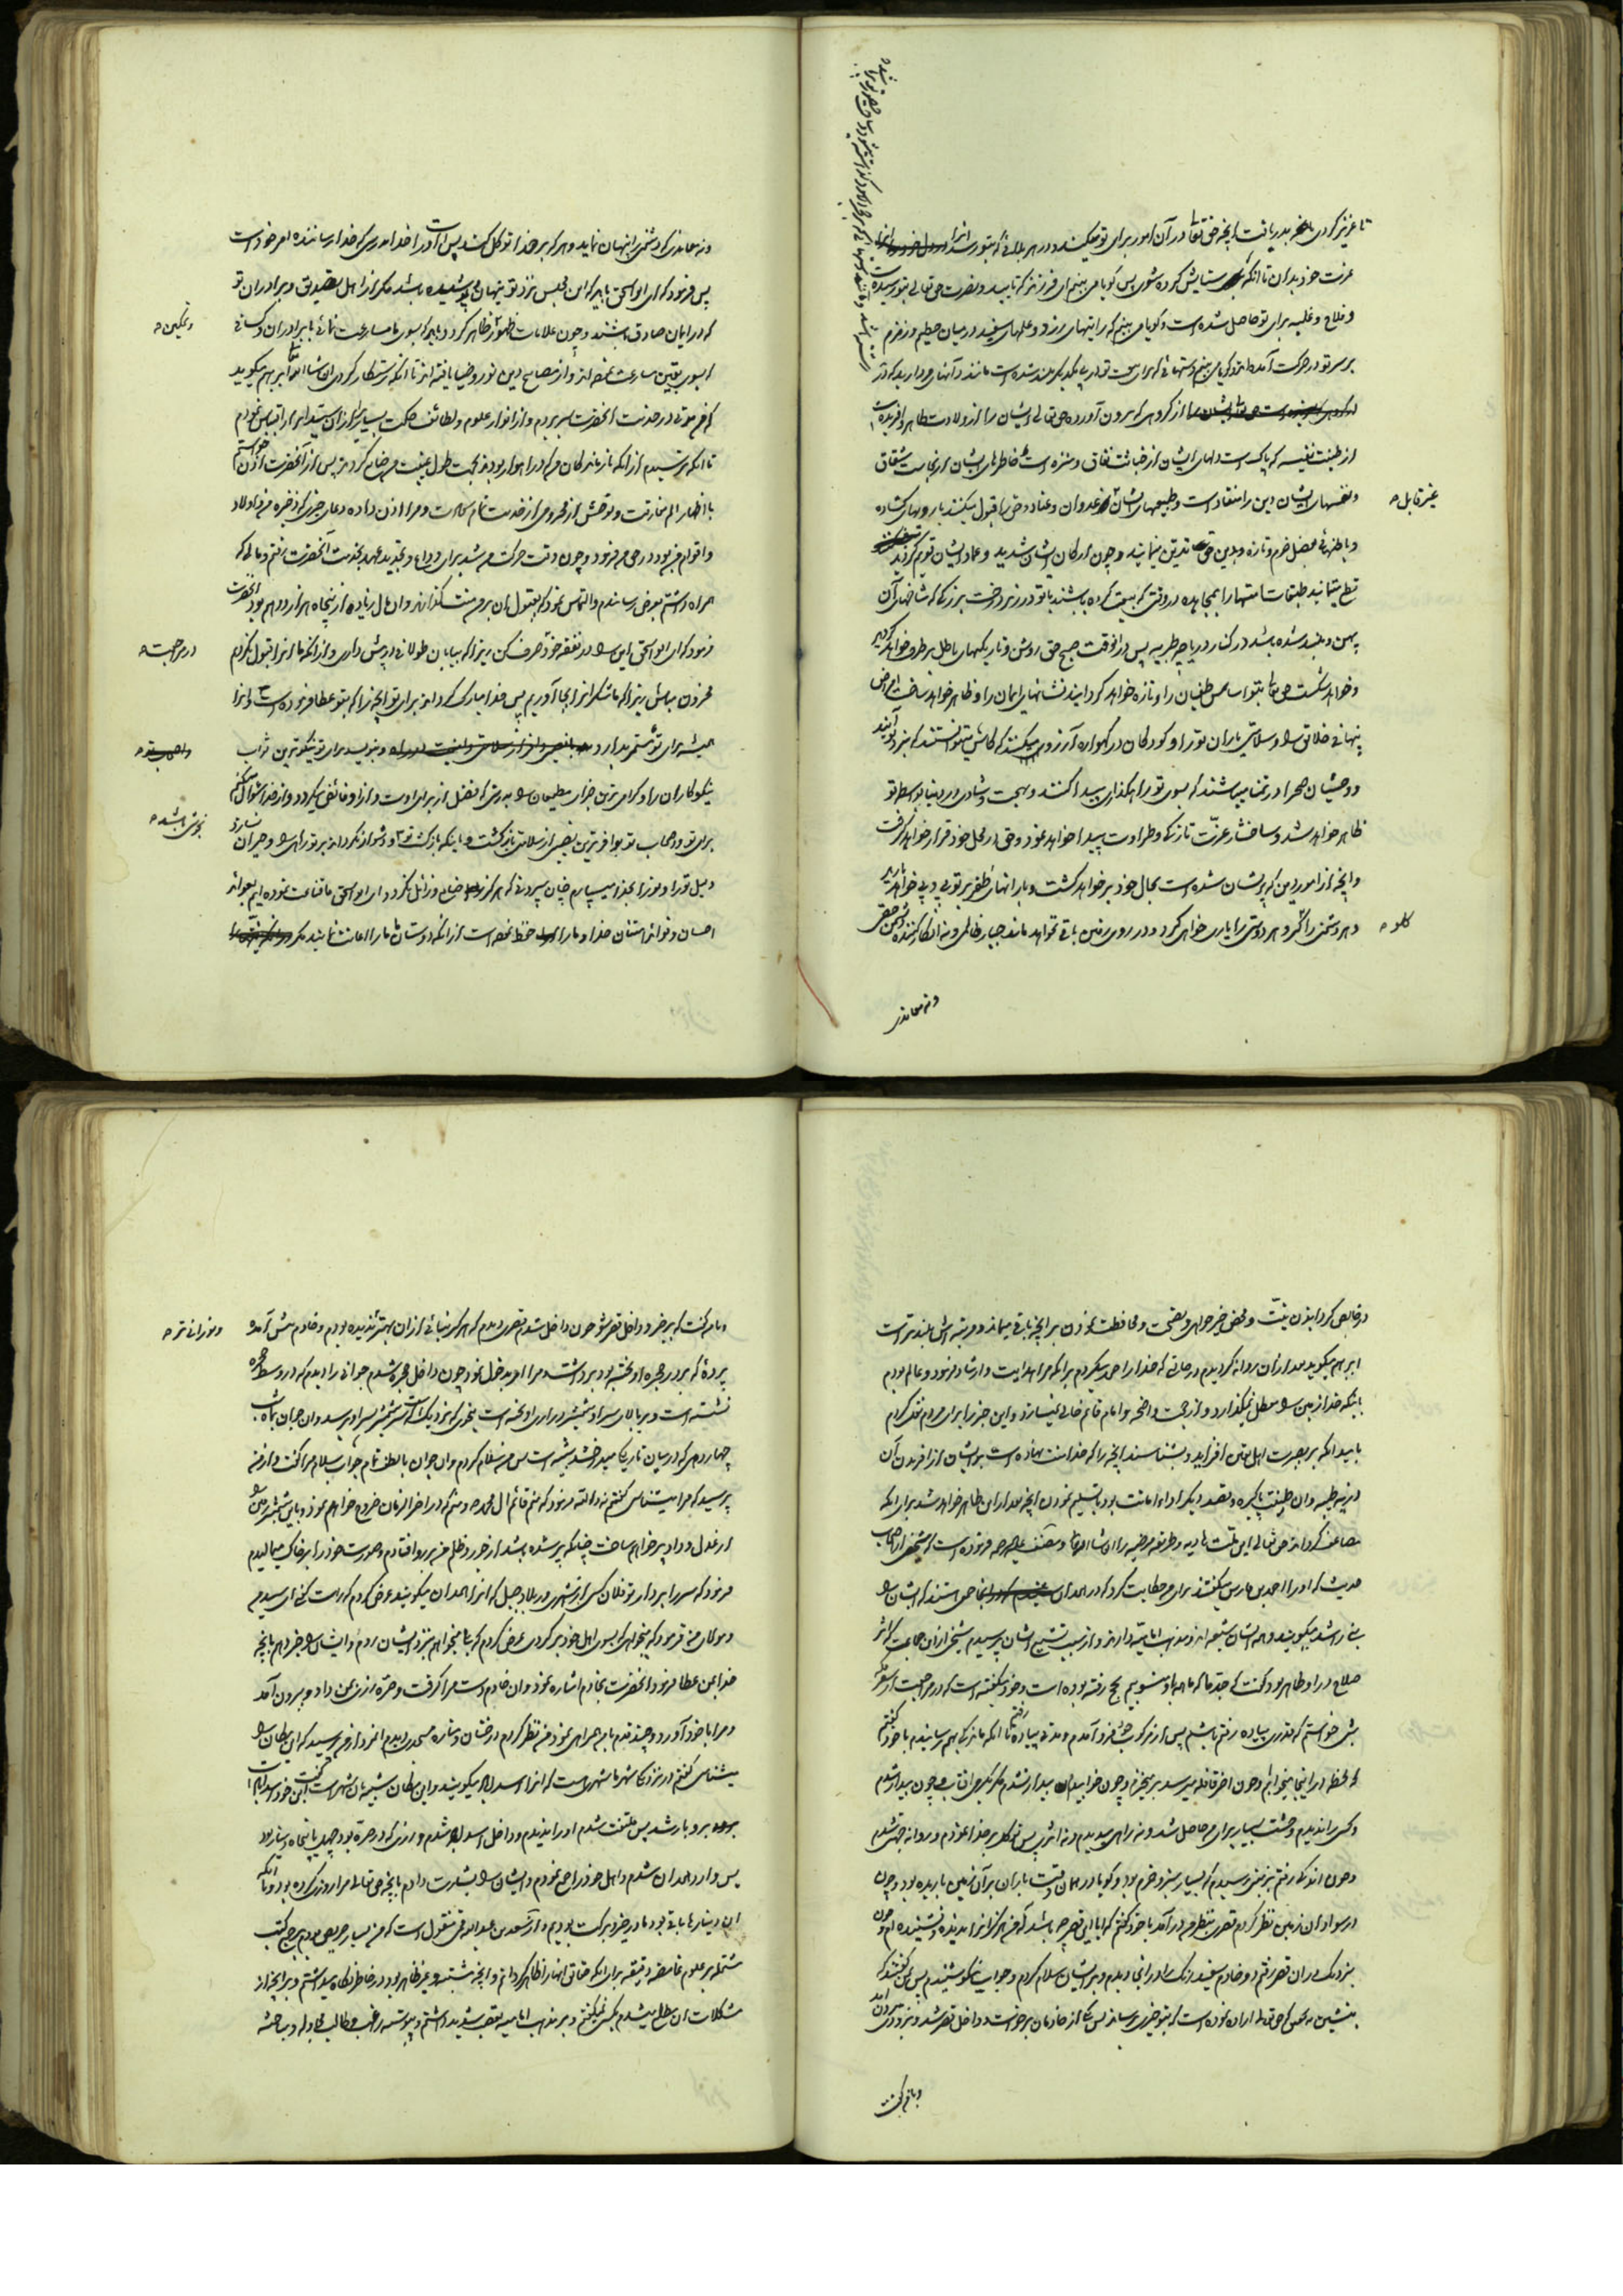 تا عزیز کردی باعز بدریافت آنچه حق تعالی در آن امور برای تو میکند و در هر بلائی که بتو رسد
عزت خود بدان تا آنکه ستایش کرده شوی پس گویا می بینم ای فرزند که تایید و نصرت حق تعالی بتو رسیده
و فلاح و غلبه برای تو حاصل شده است و گویا می بینم که رایتهای زرد و علمهای سفید در میان حطیم و زمزم
بر سر تو در حرکت آمده اند و گویا می بینم دستهائی که برای بیعت تو در پی یکدیگر بلند شده است مانند
از گروهی که بیرون آورده حق تعالی ایشان را از ولادت طاهر و آفریده است
از طینت نفیسه که پاک است دلهای ایشان از خباثت نفاق و منزه است خاطرهای ایشان از نجاست شقاق
غیر قابل
و نفسهای ایشان دین را منقاد است و طبیعتهای ایشان عدوان و عناد و حق را قبول میکنند با رویهای گشاده
و بدین حق تدین مینمایند و چون ارکان ایشان شدید و عماد ایشان قویم گردید
طبقات امتها را بمجاهده در وقتی که بیعت کرده باشند با تو در زیر درخت بزرگی که شاخهای آن
پهن و بلند شده باشد در کنار دریاچه طبریه پس در آنوقت صبح حق روشن و تاریکیهای باطل بر طرف خواهد گردید
و خواهد شکست حق تعالی بتو اساس طغیان را و تازه خواهد گردانید نشانهای ایمان را و ظاهر خواهد ساخت
و سلامتی یاران تو را و کودکان در گهواره آرزو میکنند که کاش میتوانستند که بنزد تو آیند
و وحشیان صحرا در تمنا میباشند که بسوی تو راهگذاری پیدا کنند و بهجت و شادی در دنیا بواسطه تو
ظاهر خواهد شد و شاخسار عزت تازگی و طراوت پیدا خواهد نمود و حق در محل خود قرار خواهد گرفت
و آنچه از امور دین که پریشان شده است بحال خود بر خواهد گشت و بارانهای ظفر بر تو پی در پی خواهد بارید
گلو
و هر دشمنی را و هر دوستی را یاری خواهی کرد و در روی زمین باقی نخواهد ماند جبار ظالمی و نه انکار کننده
و نه معاندی
و نه معاندی که دشمنی را پنهان نماید و هر که بر خدا توکل کند پس او را خدا بس است بدرستی که خدا رساننده امر خود است
پس فرمود که ای ابو اسحق باید که این مجلس نزد تو پنهان و پوشیده باشد مگر از اهل تصدیق و برادران تو
و تمکین
که در ایمان صادق باشند و چون علامات ظهور ظاهر گردد باید که بسوی ما مسارعت نمائی با برادران
تا آنکه رستگار گردی ان شاء الله ابراهیم میگوید
که من مدتی در خدمت آنحضرت بسر بردم و از انوار علوم و لطائف حکمت بسیاری از آن سید ابرار اقتباس نمودم
تا آنکه ترسیدم از آنکه بازماندگان من که در اهواز بودند بجهت طول غیبت من ضایع گردند پس از آنحضرت اذن خواستم
با اظهار الم مفارقت و توحش از محرومی از خدمت و مرا اذن داده دعای خیری که ذخیره من و اولاد
و اقوام من بود در حق من فرمود و چون وقت حرکت من شد برای وداع و تجدید عهد بخدمت آنحضرت رفتم و مالی که
همراه داشتم بعرض رساندم و التماس نمودم که بقبول آن بر من منت گذارند و آن مال زیاده از پنجاه هزار درهم بود آنحضرت
در مراجعت
فرمود که ای ابو اسحق این را در نفقه خود صرف کن زیرا که بیابان طولانی در پیش داری و از آنکه ما آنرا قبول نکردم
محزون مباش زیرا که ما شکر آنرا بجا آوردیم پس خدا مبارک گرداند برای تو آنچه را که بتو عطا فرموده است و آنرا
همیشه برای تو مستمر بدارد و بنویسد برای تو نیکوترین ثواب
نیکوکاران را و گرامی ترین جزای مطیعان را بدرستی که فضل از برای اوست و از خدا سئوال میکنم
نجویش باشد
برای تو و اصحاب تو بوافرترین نصیبی از سلامتی بازگشت و دشوار نگرداند بر تو راهی را و حیران نسازد
دلیل تو را و تو را بخدا میسپارم چنان سپردنی که هرگز ضایع و زائل نگردد ای ابو اسحق ما قناعت نموده ایم بعواید
احسان و فوائد امتنان خدا و ما را حفظ نموده است از آنکه دوستان ما ما را اعانت نمایند مگر
در خالص گردانیدن نیت و محض خیرخواهی و نصیحت و محافظت نمودن بر آنچه باقی میماند و مرتبه اش بلندتر است
ابراهیم میگوید بعد از آن روانه گردیدم در حالتی که خدا را حمد میکردم بر آنکه مرا هدایت و ارشاد فرمود و عالم بودم
باینکه خدا زمین را معطل نمیگذارد و از حجت واضحه و امام قائم خالی نمیسازد و این خبر را برای مردم نقل کردم
بامید آنکه بر بصیرت اهل یقین افزاید و بشناسند آنچه را که خدا منت نهاده است بر ایشان از آفریدن آن
ذریه طیبه و آن طینت پاکیزه و بقصد دیگر اداء امانت بود با تسلیم نمودن آنچه بعد از این ظاهر خواهد شد برای آنکه
مضاعف گرداند حق تعالی این ملت هادیه و طریقه مرضیه را ان شاء الله تعالی و مصنف علیه الرحمه فرموده است که شیخی از اصحاب
حدیث که او را احمد بن فارس میگفتند برای من حکایت کرد که در همدان جمعی هستند که ایشان را
بنی راشد میگویند و همه ایشان شیعه اند و مذهب امامیه دارند و از سبب تشیع ایشان پرسیدم شیخی از آن جماعت که اثر
صلاح در او ظاهر بود گفت که جد ما که ما همه باو منسوبیم بحج رفته بوده است و خود میگفته است که در مراجعت از سفر مکه
شبی خواستم که قدری پیاده رفته باشم پس از مرکوب خود فرو آمدم و مدتی پیاده رفتم تا آنکه ماندگی بهم رسانیدم با خود گفتم
که لحظه در اینجا میخوابم و چون آخر قافله میرسد بر میخیزم و چون خوابیدم بیدار نشدم مگر بگرمی آفتاب و چون بیدار شدم
و کسی را ندیدم وحشت بسیار برای من حاصل شد و نه راهی میدیدم و نه اثری پس توکل بر خدا نمودم و روانه جهتی شدم
و چون اندک راهی رفتم بزمینی رسیدم که بسیار سبز و خرم بود و گویا در همان وقت باران بر آن زمین باریده بود و چون
در سواد آن زمین نظر کردم قصری بنظرم در آمد با خود گفتم که آیا این قصر چه باشد که من هرگز آنرا ندیده و نشنیده ام و چون
بنزدیک در آن قصر رفتم دو خادم سفید رنگ را در آنجا دیدم و بر ایشان سلام کردم و جواب نیکو شنیدم پس بمن گفتند که
بنشین بدرستی که حق تعالی اراده نموده است که بتو خیری برساند پس یکی از خادمان برخواست و داخل قصر شد و بزودی بیرون آمد
و بمن گفت
و بمن گفت که برخیز و داخل قصر شو چون داخل شدم قصری دیدم که هرگز بنائی از آن بهتر ندیده بودم و خادم پیش آمده
و نورانی تر
پرده که بر در حجره آویخته بود برداشت مرا امر بدخول نمود چون داخل حجره شدم جوانی را دیدم که در وسط حجره
نشسته است و بر بالای سر او شمشیر درازی آویخته است بنحوی که نزدیک است سر شمشیر بسر او برسد و آن جوان بماه شب
چهاردهمی که در میان تاریکی میدرخشد شبیه است پس من سلام کردم و آن جوان با لطف تمام جواب سلام مرا گفت و از من
پرسید که مرا میشناسی گفتم نه والله فرمود که منم قائم آل محمد و منم که در آخر الزمان خروج خواهم نمود و باین شمشیر زمین را
از عدل و داد پر خواهم ساخت چنانکه پر شده باشد از جور و ظلم من بر رو افتادم و صورت خود را بر خاک میمالیدم
فرمود که سر را بردار تو فلان کسی از شهری در بلاد جبل که آنرا همدان میگویند عرض کردم که راست گفتی ای سید من
و مولای من فرمود که میخواهی که بسوی اهل خود برگردی عرض کردم که بلی میخواهم بنزد ایشان روم و ایشان را خبر دهم بآنچه
خدا بمن عطا فرمود آنحضرت بخادم اشاره نمود و آن خادم دست مرا گرفت و صره زری بمن داد و بیرون آمد
و مرا با خود آورد و چند قدم با من همراهی نمود من نظر کردم درختان و مناره مسجدی دیدم آنمرد از من پرسید که این مکان را
میشناسی گفتم در نزدیکی شهر ما شهری است که آنرا اسدآباد میگویند و این مکان شبیه بآن شهر است گفت این خود اسدآباد است
برو با رشد پس ملتفت شدم او را ندیدم و داخل اسدآباد شدم و زری که در صره بود چهل یا پنجاه دینار بود
پس وارد همدان شدم و اهل خود را جمع نمودم و ایشان را بشارت دادم بآنچه حق تعالی مرا روزی کرده بود و تا آنکه
آن دینارها باقی بود ما در خیر و برکت بودیم و از سعد بن عبدالله قمی منقول است که من بسیار حریص بودم بر جمع کتب
مشتمله بر علوم غامضه و دقیقه برای آنکه حقائق آنها را ظاهر گردانم و آنچه مشتبه و غیر ظاهر بود در خاطر نگاه میداشتم و بر آنچه از
مشکلات آن مطلع میشدم بکسی نمیگفتم و بر مذهب امامیه تعصب شدید داشتم و پیوسته راغب و طالب مجادله و مباحثه